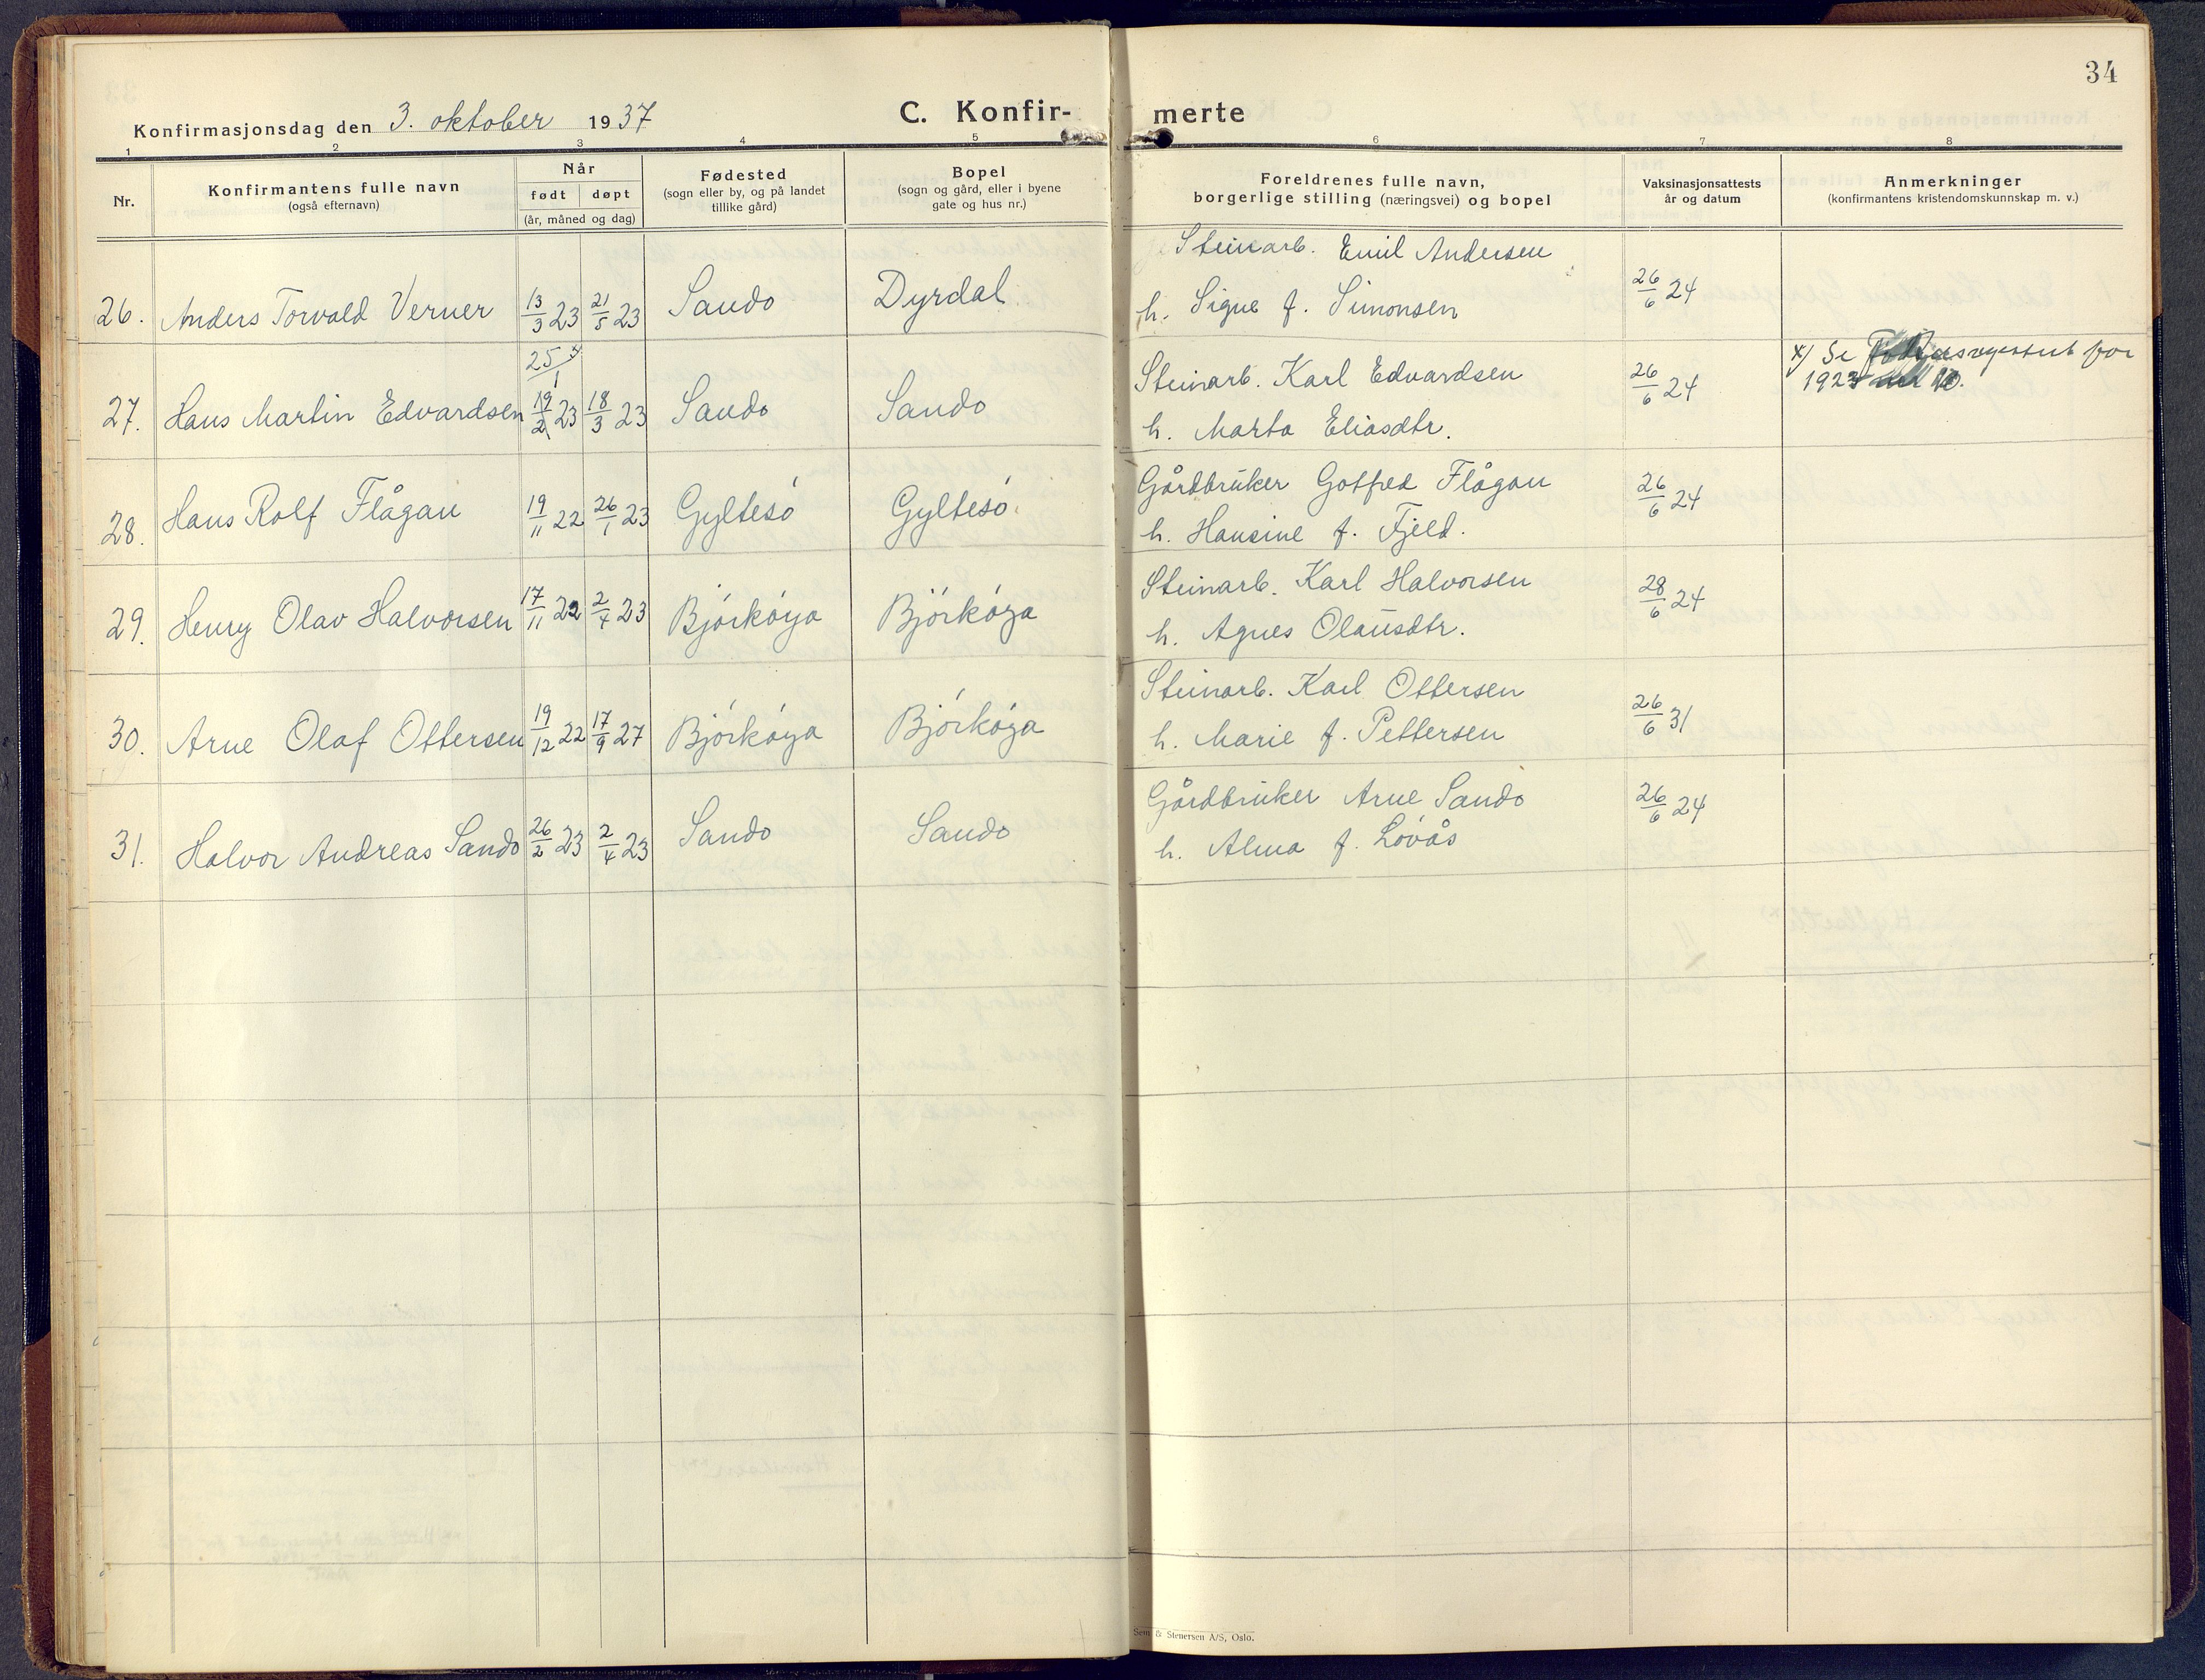 34
Konfirmasjonsdag den 3. oktober 1937
C. Konfir- merte
1 2 3 4 5 6 7 8
Nr.
Konfirmantens fulle navn
(også efternavn)
Når
født døpt
(år, måned og dag)
Fødested
(sogn eller by, og på landet
tillike gård)
Bopel
(sogn og gård, eller i byene
gate og hus nr.)
Foreldrenes fulle navn,
borgerlige stilling (næringsvei) og bopel
Vaksinasjonsattests
år og datum
Anmerkninger
(konfirmantens kristendomskunnskap m. v.)
Steinarb. Emil Andersen
26. Anders Torvald Verner 13/3 23 21/5 23 Sando Dyrdal h. Signe f. Simonsen 26/6 24
25/1 x)
Steinarb. Karl Edvardsen 26/6 24 x) Se for
27. Hans Martin Edvardsen 19/2 23 18/3 23 Sando Sando h. Marta Eliasdtr.
Gårdbruker Gotfred Flågan
28. Hans Rolf Flågan 19/11 22 26/1 23 Gyltesö Gyltesö. h. Hansine f. Fjeld. 26/6 24
Steinarb. Karl Halvorsen
29. Henry Olav Halvorsen 17/11 22 2/4 23 Björköya Björköya h. Agnes Olausdtr. 28/6 24
Steinarb. Karl Ottersen
30. Arne Olaf Ottersen 19/12 22 17/9 27 Björköya Björköya h. Marie f. Pettersen 26/6 31
Gårdbruker Arne Sando 26/6 24
31. Halvor Andreas Sando 26/2 23 2/4 23 Sando Sando h. Alma f. Lövås
Sem & Stenersen A/S, Oslo.